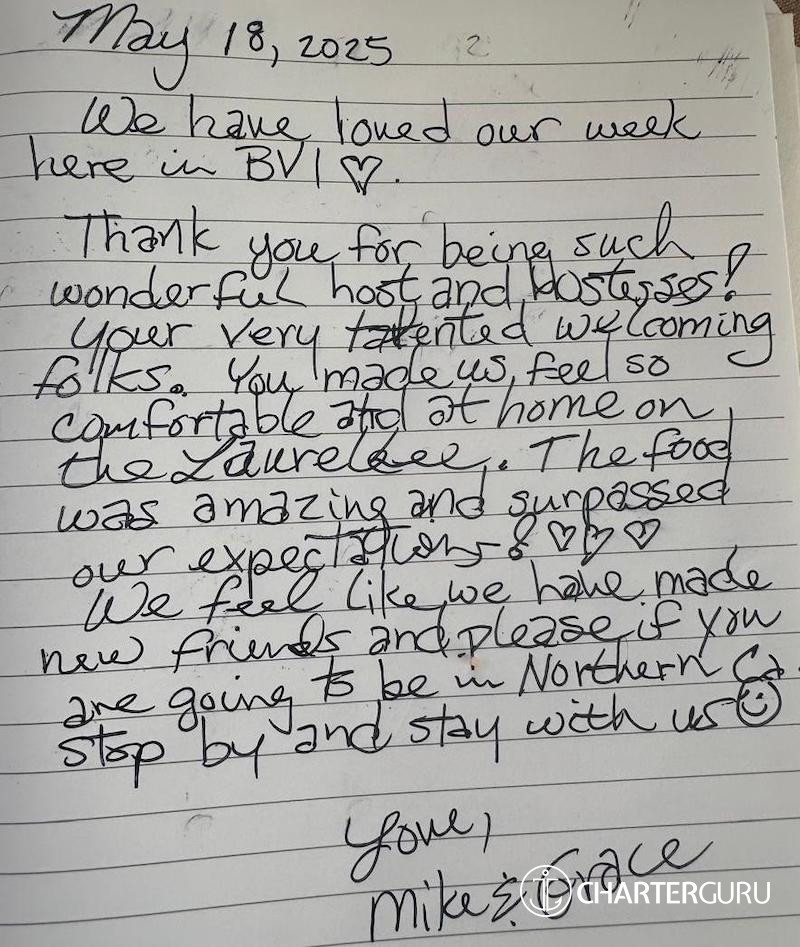 May 18, 2025
We have loved our week
here in BVI ♡.
Thank you for being such
wonderful host and Hostesses!
Your very talented welcoming
folks. You made us feel so
comfortable and at home on
the Laurelee. The food
was amazing and surpassed
our expectations! ♡♡♡
We feel like we have made
new friends and please if you
are going to be in Northern Ca.
stop by and stay with us ☺
Mike & Grace
CHARTERGURU